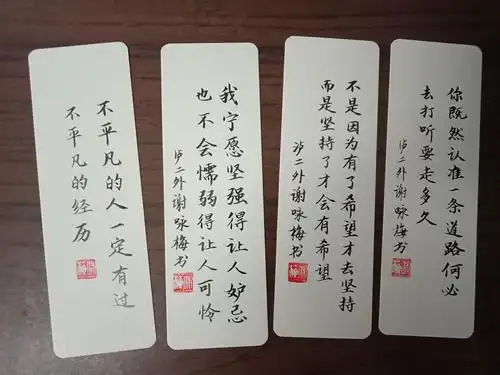 不平凡的人一定有过
不平凡的经历
我宁愿坚强得让人妒忌
也不会懦弱得让人可怜
二外谢咏梅书
不是因为有了希望才去坚持
而是坚持了才会有希望
二外谢咏梅书
你既然认准一条道路何必
去打听要走多久
二外谢咏梅书